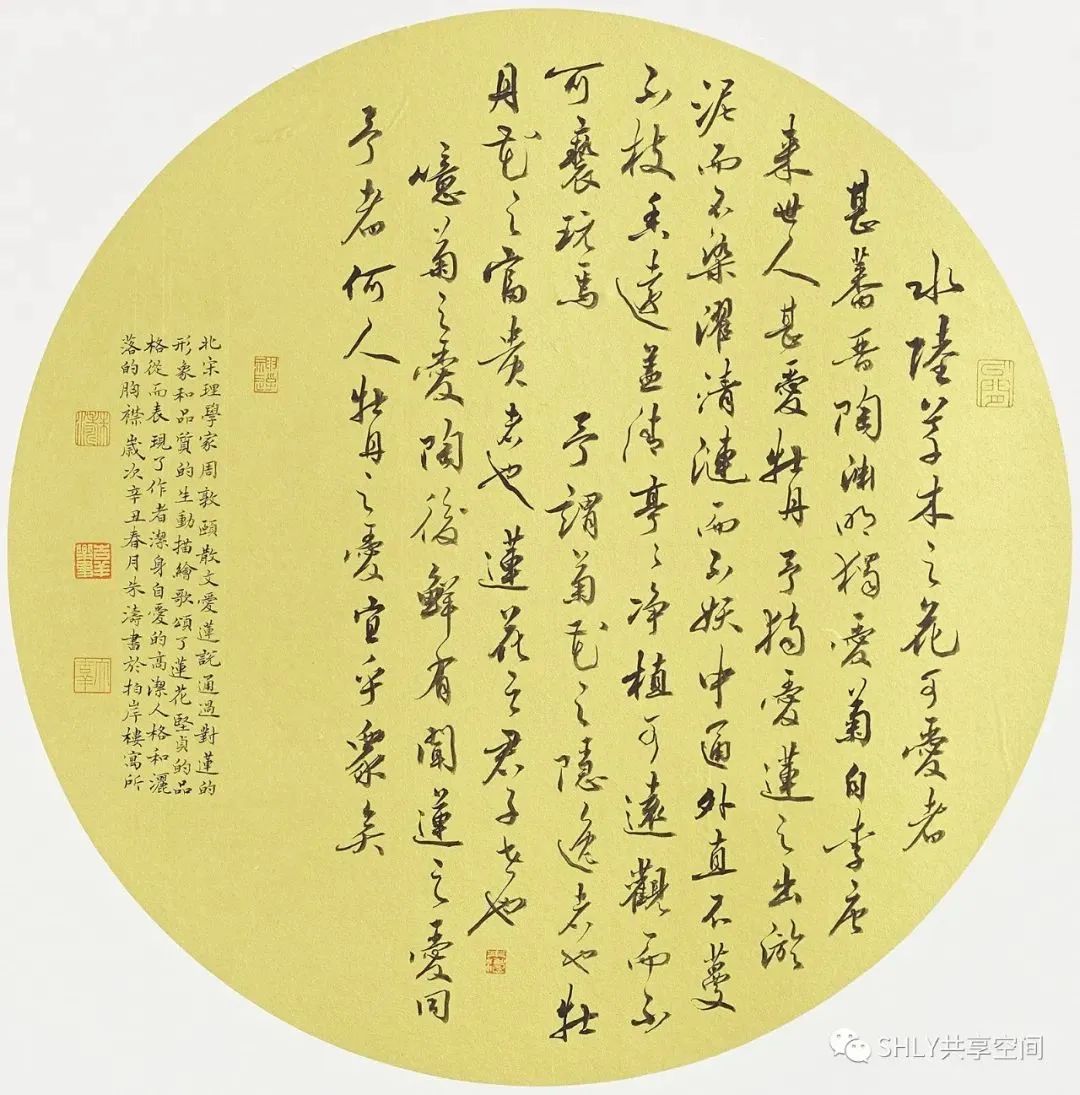 水陸草木之花可愛者
甚蕃晋陶淵明獨愛菊自李唐
来世人甚愛牡丹予獨愛蓮之出淤
泥而不染濯清漣而不妖中通外直不蔓
不枝香遠益清亭々净植可遠觀而不
可褻玩焉 予謂菊花之隱逸者也牡
丹花之富貴者也蓮花之君子者也
噫菊之愛陶後鮮有聞蓮之愛同
予者何人牡丹之愛宜乎衆矣
北宋理學家周敦頤散文愛蓮説通過對蓮的
形象和品質的生動描繪歌頌了蓮花堅貞的品
格從而表現了作者潔身自愛的高潔人格和灑
落的胸襟歲次辛丑春月朱濤書於柏岸樓寓所
SHLY共享空间